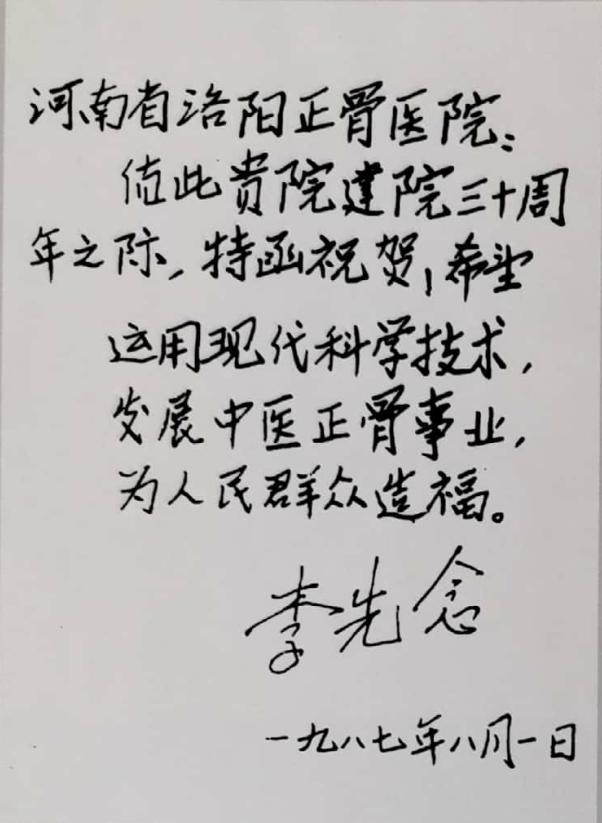 河南省洛阳正骨医院：
值此贵院建院三十周
年之际，特函祝贺，希望
运用现代科学技术，
发展中医正骨事业，
为人民群众造福。
李先念
一九八七年八月一日